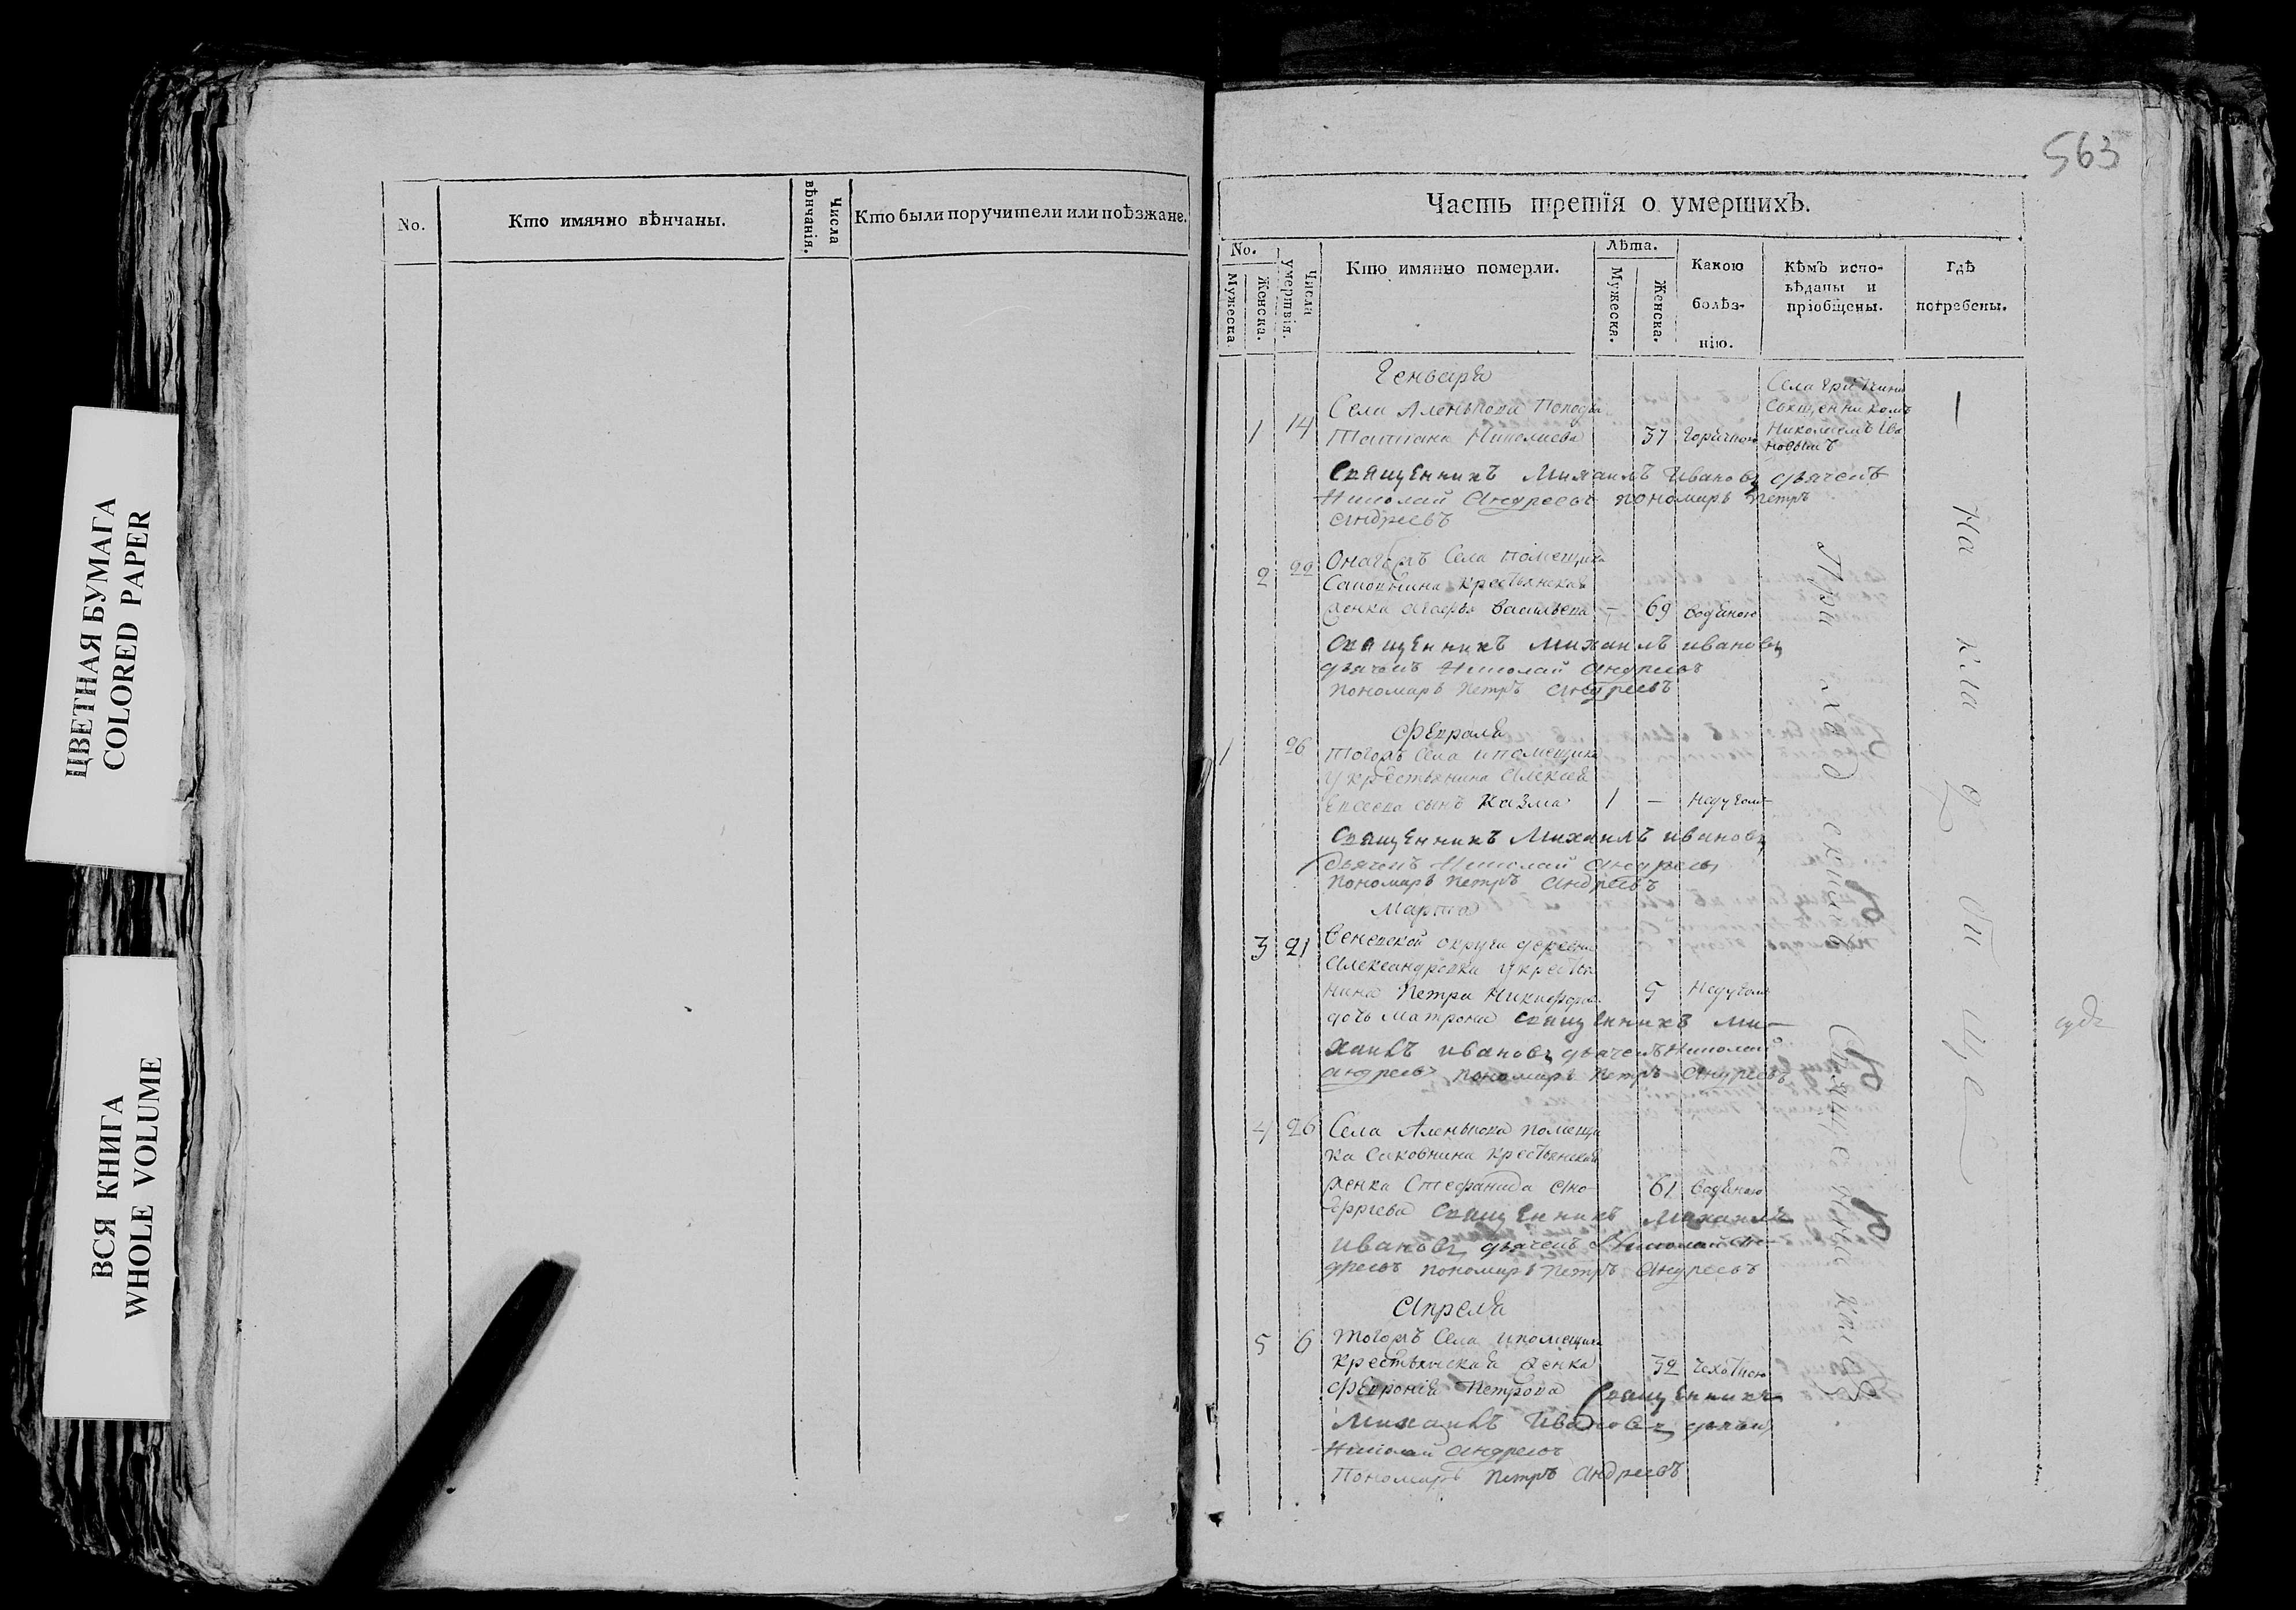 ЦВЕТНАЯ БУМАГА
COLORED PAPER
ВСЯ КНИГА
WHOLE VOLUME
No.
Кто имянно вѣнчаны.
Числа вѣнчанія.
Кто были поручители или поѣзжане.
563
Часть третія о умершихъ.
No.
Мужеска
Женска.
Числа умертвія.
Кто имянно померли.
Лѣта.
Мужеска.
Женска.
Какою болѣз-
нію.
Кѣмъ испо-
вѣданы и
пріобщены.
гдѣ
погребены.
Генваря
1 14 Села Аленькова
Татiана Николаева 37 горячкою
Села
Священникомъ
Николаемъ Ива
новымъ
Священникъ Михаилъ Ивановъ дьячекъ
Николай Андреевъ пономарь Петръ
Андреевъ
2 22 Онагожъ Села помещика
Саковнина крестьянская
женка Агафья Васильева – 69 водяною
Священникъ Михаилъ Ивановъ
дьячекъ Николай Андреевъ
пономарь Петръ Андреевъ
Февраля
1 26 Тогожъ Села и помещика
у крестьянина Алексея
сынъ Казма 1 –
Священникъ Михаилъ Ивановъ
дьячекъ Николай Андреевъ
пономарь Петръ Андреевъ
Марта
3 21 Веневской округи деревни
Александровки у крестья
нина Петра Никифорова 5
дочь Матрона Священникъ Ми-
хаилъ Ивановъ дьячекъ Николай
Андреевъ пономарь Петръ Андреевъ
4 26 Села Аленькова помещи
ка Саковнина крестьянская
женка Стефанида 61 водяною
Священникъ Михаилъ
Ивановъ дьячекъ Николай Ан-
дреевъ пономарь Петръ Андреевъ
Апреля
5 6 Тогожъ Села и помещика
крестьянская женка 32 чехоткою
Феврониѣ Петрова Священникъ
Михаилъ Ивановъ
Николай Андреевъ
Пономарь Петръ Андреевъ
При
на кладбище